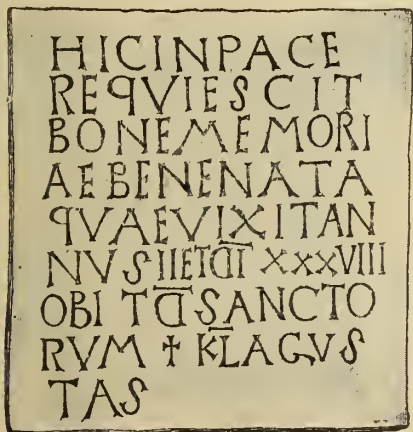 HICINPACE
REQVIESCIT
BONEMEMORI
AEBENENATA
QVAEVIXITAN
NVS IIETD̅I̅ XXXVIII
OBI TD̅SANCTO
RVM ✝ KL̅AGVS
TAS